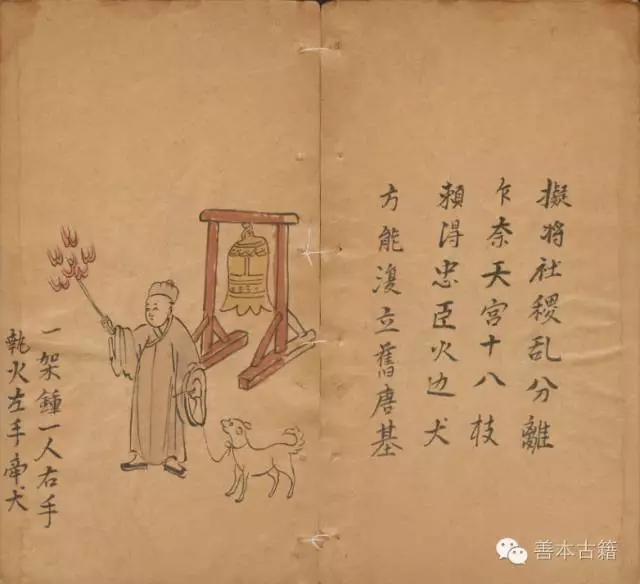 擬將社稷乱分離
乍奈天宮十八枝
賴淂忠臣火边犬
方能復立舊唐基
一架鍾一人右手
執火左手帝犬
善本古籍